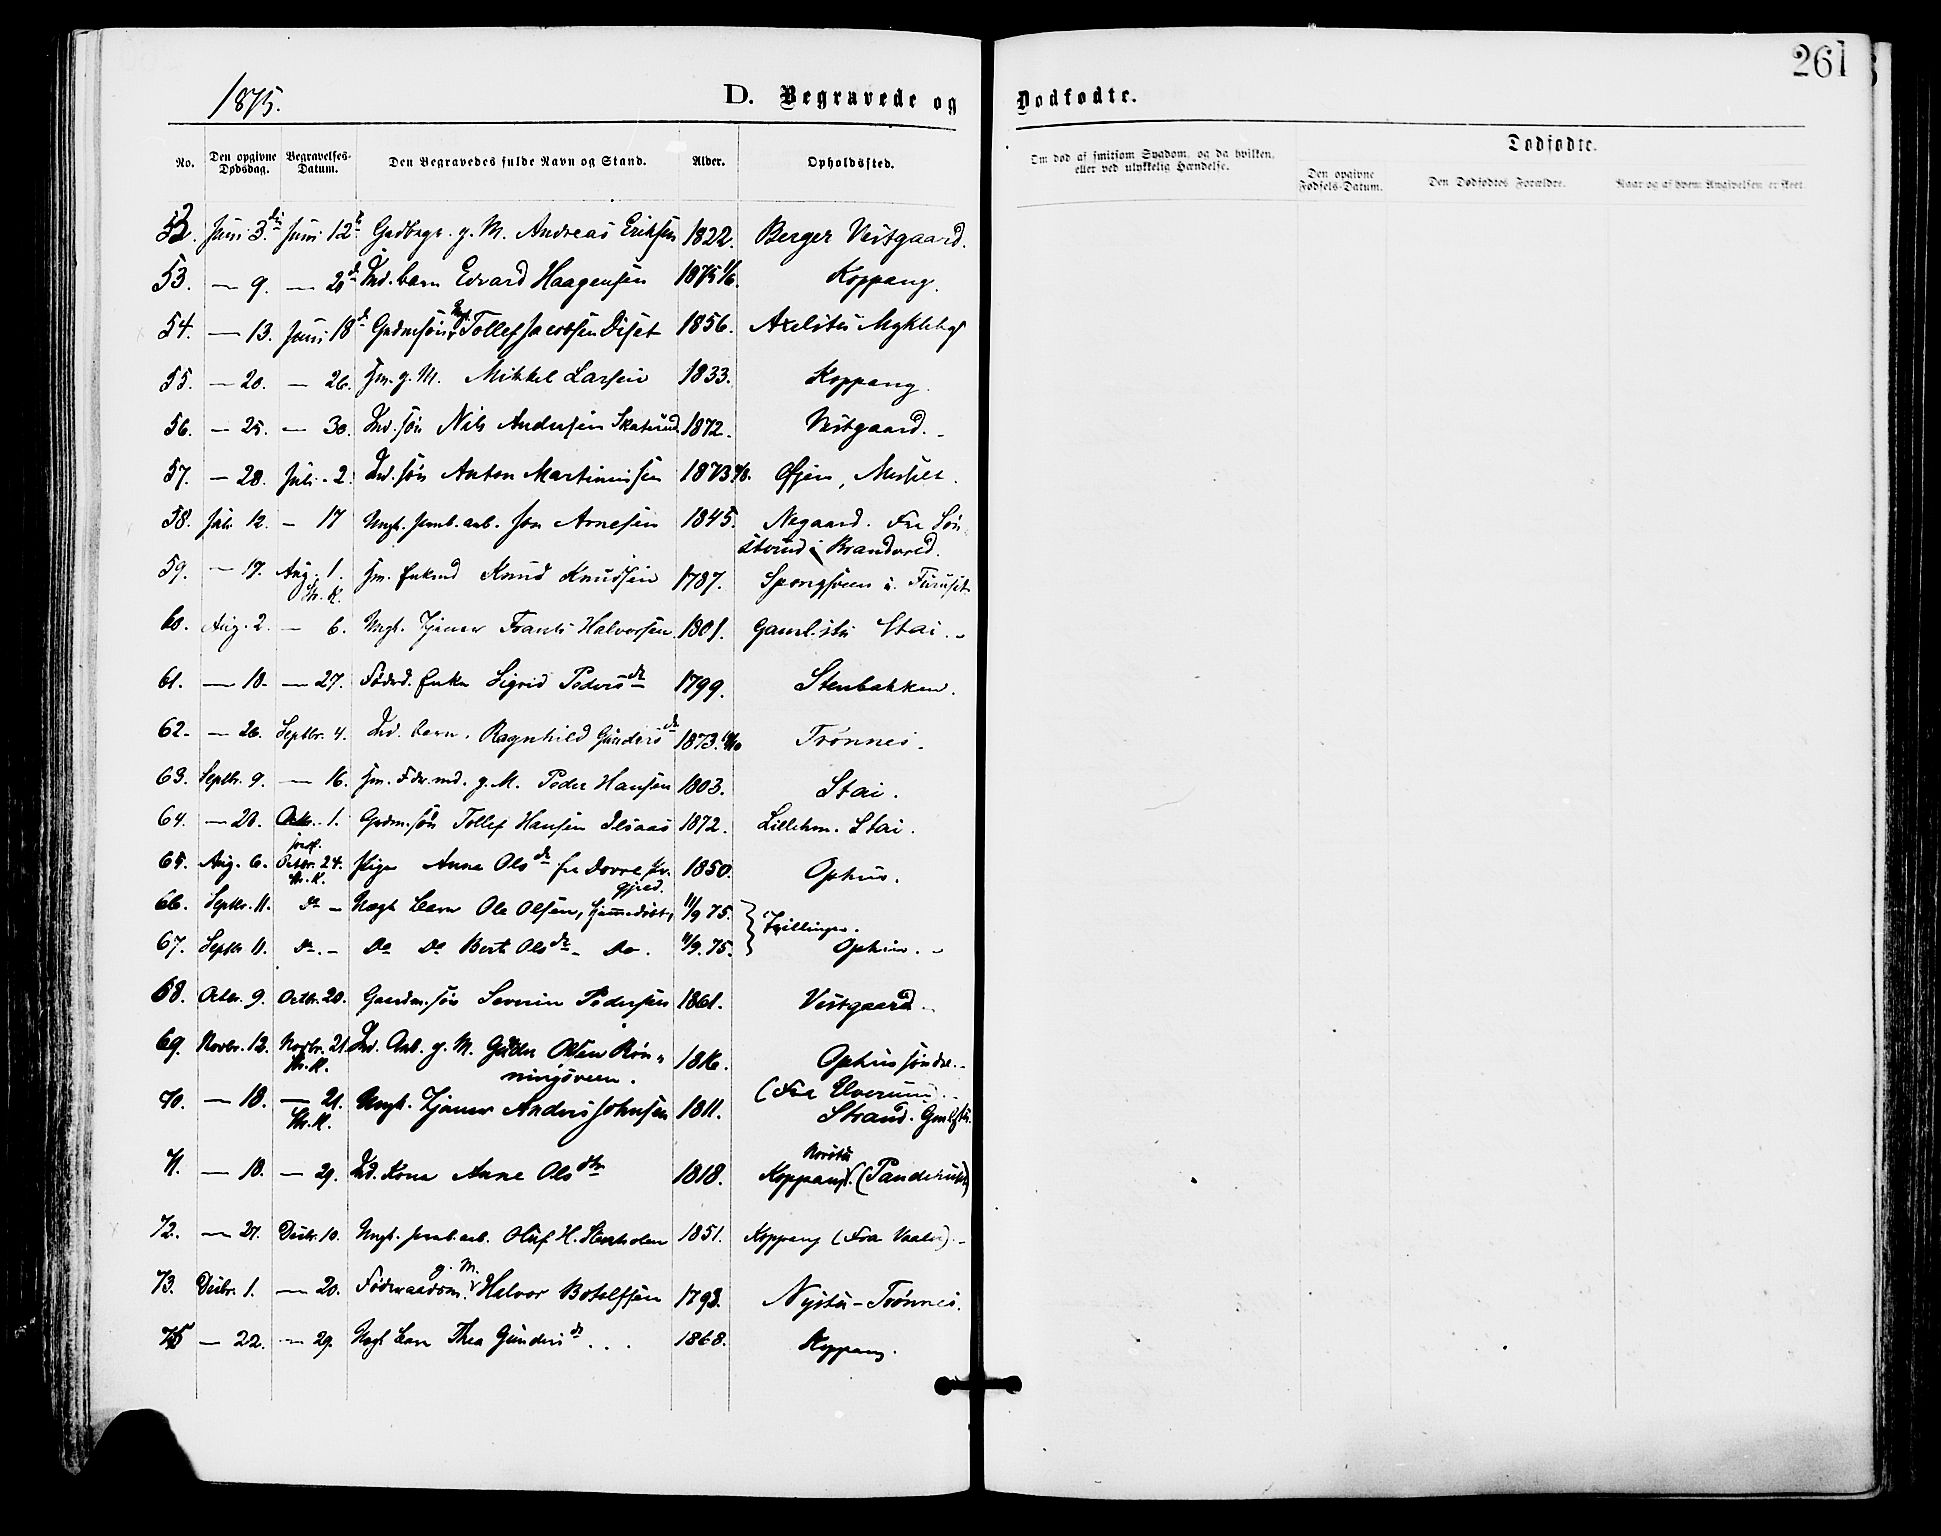 261
1875.
D. Begravede og Dødfødte.
No. Den opgivne Dødsdag. Begravelses-Datum. Den Begravedes fulde Navn og Stand. Alder. Opholdssted. Om død af smitsom Sygdom, og da hvilken, eller ved ulykkelig Hændelse. Dødfødte. Den opgivne Fødsels-Datum. Den Dødfødtes Forældre. Naar og af hvem Angivelsen er skeet.
52. Juni 3. Juni 12 g. M. Andreas Eriksen 1822. Berger Vestgaard.
53. — 9. — Ind. barn Edvard Haagensen 1875 Koppang.
54. — 13. Juni 18 Tollef Jacobsen Diset 1856. Myklebg
55. — 20. — 26. g. M. Mikkel Larsen 1833. Koppang.
56. — 25. — 30. Ind. søn Nils Andersen Skaterud 1872. Vestgaard.
57. — 28. Juli - 2. Ind. søn Anton Martinussen 1873 Øjen, Messelt.
58. Juli 12. — 17 Ungk. Jernb. arb. Jon Arnesen 1845. Negaard. Fra Søn
sterud i Brandvold.
59. — 17. Aug. 1. Enkmd Knud Knudsen 1787. i Furuset
St. K.
60. Aug. 2. — 6. Ungk. Tjener Frants Halvorsen 1801. Gamlstu Stai.
61. — 18. — 27. Føderd. Enke Sigrid Pedersdr 1799. Stenbakken.
62. — 26. Septbr. 4. Ind. barn. Ragnhild Gundersdr 1873. Trønnes.
63. Septbr. 9. — 16. g. M. Peder Hansen 1803. Stai.
64. — 20. Octbr. 1. Grdm. søn Tollef Hansen Ilsaas 1872. Lillehm. Stai.
65. Aug. 6. Octbr. 24. Pige Anne Olsdr fra Dovre 1850. Ophus.
St. K.
66. Septbr. 11. Do — Uægt barn Ole Olsen, 11/9 75. Tvillinger.
67. Septbr 11. Do. — Do Do Berte Olsdr — Do. 11/9. 75. Ophus.
68. Octbr. 9. Octbr. 20. Gaardm. søn Severin Pedersen 1861. Vestgaard.
69. Novbr. 12. Novbr. 21. Ind. Arb. g. M. Olsen Røn- 1816. Ophus søndre.
St. K. ningsveen.
(Fra Elverum).
70. — 18. — 21. Ungk. Tjener Anders Johnsen 1811. Strand.
St. K.
71. — 18. — 29. Ind. Kone Anne Olsdtr 1818. Koppang.
72. — 27. Decbr. 10. Ungk. Jernb. arb. Oluf H. 1851. Koppang (Fra Vaaler).
g. M.
73. Decbr. 1. — 20. Føderaadsm. Halvor Botolfsen 1793. Nystu - Trønnes.
75 — 22. — 29. Uægt barn Thea Gundersdr . . . 1868. Koppang.